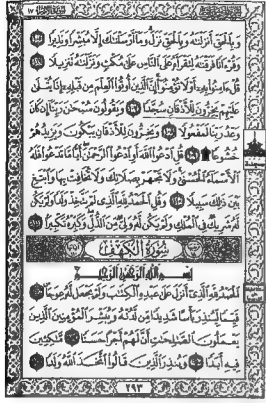 وَبِالْحَقِّ أَنزَلْنَاهُ وَبِالْحَقِّ نَزَلَ وَمَا أَرْسَلْنَاكَ إِلَّا مُبَشِّرًا وَنَذِيرًا ١٠٥
وَقُرْءَانًا فَرَقْنَاهُ لِتَقْرَأَهُ عَلَى النَّاسِ عَلَى مُكْثٍ وَنَزَّلْنَاهُ تَنزِيلًا ١٠٦
قُلْ ءَامِنُوا بِهِ أَوْ لَا تُؤْمِنُوا إِنَّ الَّذِينَ أُوتُوا الْعِلْمَ مِن قَبْلِهِ إِذَا يُتْلَى
عَلَيْهِمْ يَخِرُّونَ لِلْأَذْقَانِ سُجَّدًا ١٠٧ وَيَقُولُونَ سُبْحَانَ رَبِّنَا إِن كَانَ
وَعْدُ رَبِّنَا لَمَفْعُولًا ١٠٨ وَيَخِرُّونَ لِلْأَذْقَانِ يَبْكُونَ وَيَزِيدُهُمْ
خُشُوعًا ١٠٩ قُلِ ادْعُوا اللَّهَ أَوِ ادْعُوا الرَّحْمَٰنَ أَيًّا مَّا تَدْعُوا فَلَهُ
الْأَسْمَاءُ الْحُسْنَى وَلَا تَجْهَرْ بِصَلَاتِكَ وَلَا تُخَافِتْ بِهَا وَابْتَغِ
بَيْنَ ذَٰلِكَ سَبِيلًا ١١٠ وَقُلِ الْحَمْدُ لِلَّهِ الَّذِي لَمْ يَتَّخِذْ وَلَدًا وَلَمْ يَكُن
لَّهُ شَرِيكٌ فِي الْمُلْكِ وَلَمْ يَكُن لَّهُ وَلِيٌّ مِّنَ الذُّلِّ وَكَبِّرْهُ تَكْبِيرًا ١١١
سُورَةُ الْكَهْفِ
بِسْمِ اللَّهِ الرَّحْمَٰنِ الرَّحِيمِ
الْحَمْدُ لِلَّهِ الَّذِي أَنزَلَ عَلَى عَبْدِهِ الْكِتَابَ وَلَمْ يَجْعَل لَّهُ عِوَجًا ١
قَيِّمًا لِّيُنذِرَ بَأْسًا شَدِيدًا مِّن لَّدُنْهُ وَيُبَشِّرَ الْمُؤْمِنِينَ الَّذِينَ
يَعْمَلُونَ الصَّالِحَاتِ أَنَّ لَهُمْ أَجْرًا حَسَنًا ٢ مَّاكِثِينَ
فِيهِ أَبَدًا ٣ وَيُنذِرَ الَّذِينَ قَالُوا اتَّخَذَ اللَّهُ وَلَدًا ٤
٢٩٣